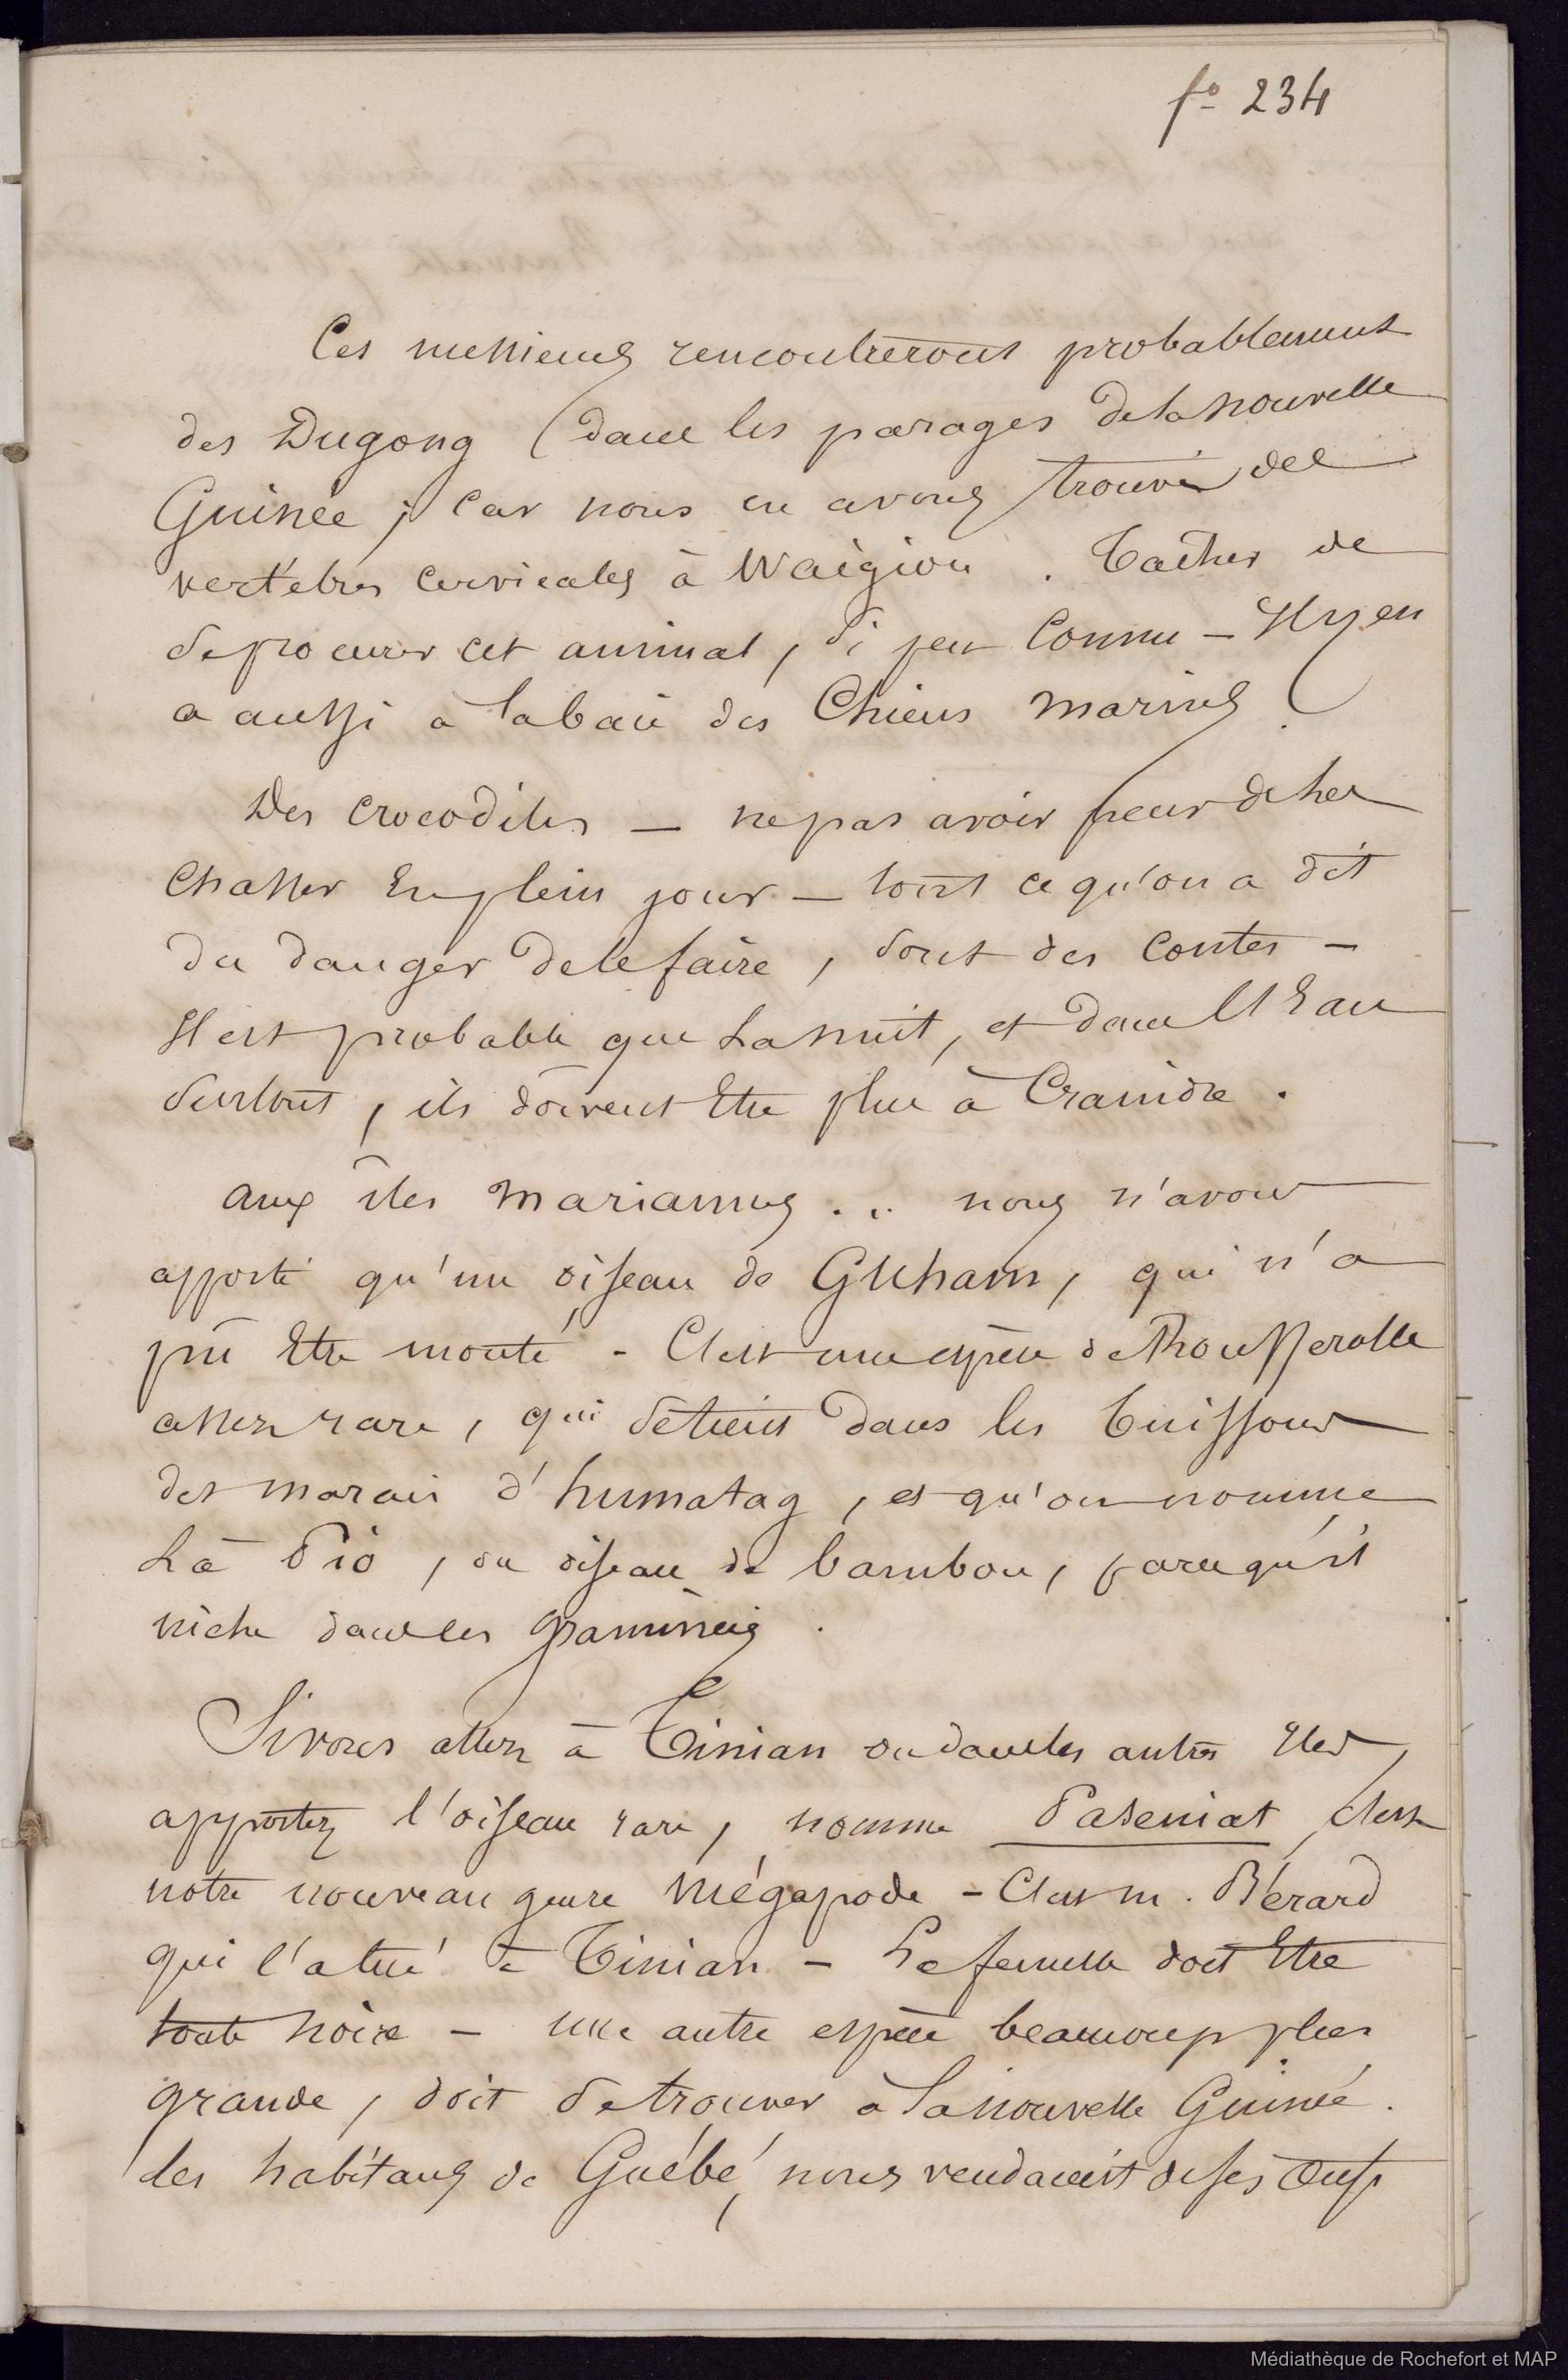 fº 234
Ces messieurs rencontreront probablement
des Dugong (dans les parages de la nouvelle
Guinée ; car nous en avons trouvé des
vertèbres cervicales à Waigiou . Tacher de
se procurer cet animal, si peu Connu — Il y en
a aussi à la baie des Chiens marins )
Des crocodiles — ne pas avoir peur de les
chasser En plein jour — tout ce qu'on a dit
du danger de le faire , sont des Contes —
Il est probable que La nuit, et dans l'Eau
surtout , ils doivent Etre plus à Craindre .
aux îles mariannes ... nous n'avons
apporté qu'un oiseau de Guham, qui n'a
pu Etre monté - C'est une espèce de Rousserolle
assez rare , qui se tient dans les buissons
des marais d'humatag , et qu'on nomme
Là Pio , ou oiseau de bambou, parce qu'il
niche dans les graminées .
Si vous allez à Tinian ou dans les autres Iles,
apportez l'oiseau rare, nommé Paseniat, c'est
notre nouveau genre Mégapode - C'est m. Bérard
qui l'a tué à Tinian - La femelle doit Etre
toute noire — une autre espèce beaucoup plus
grande , doit se trouver à La nouvelle Guinée .
les habitans de Guébé, nous vendaient de ses Œufs
Médiathèque de Rochefort et MAP